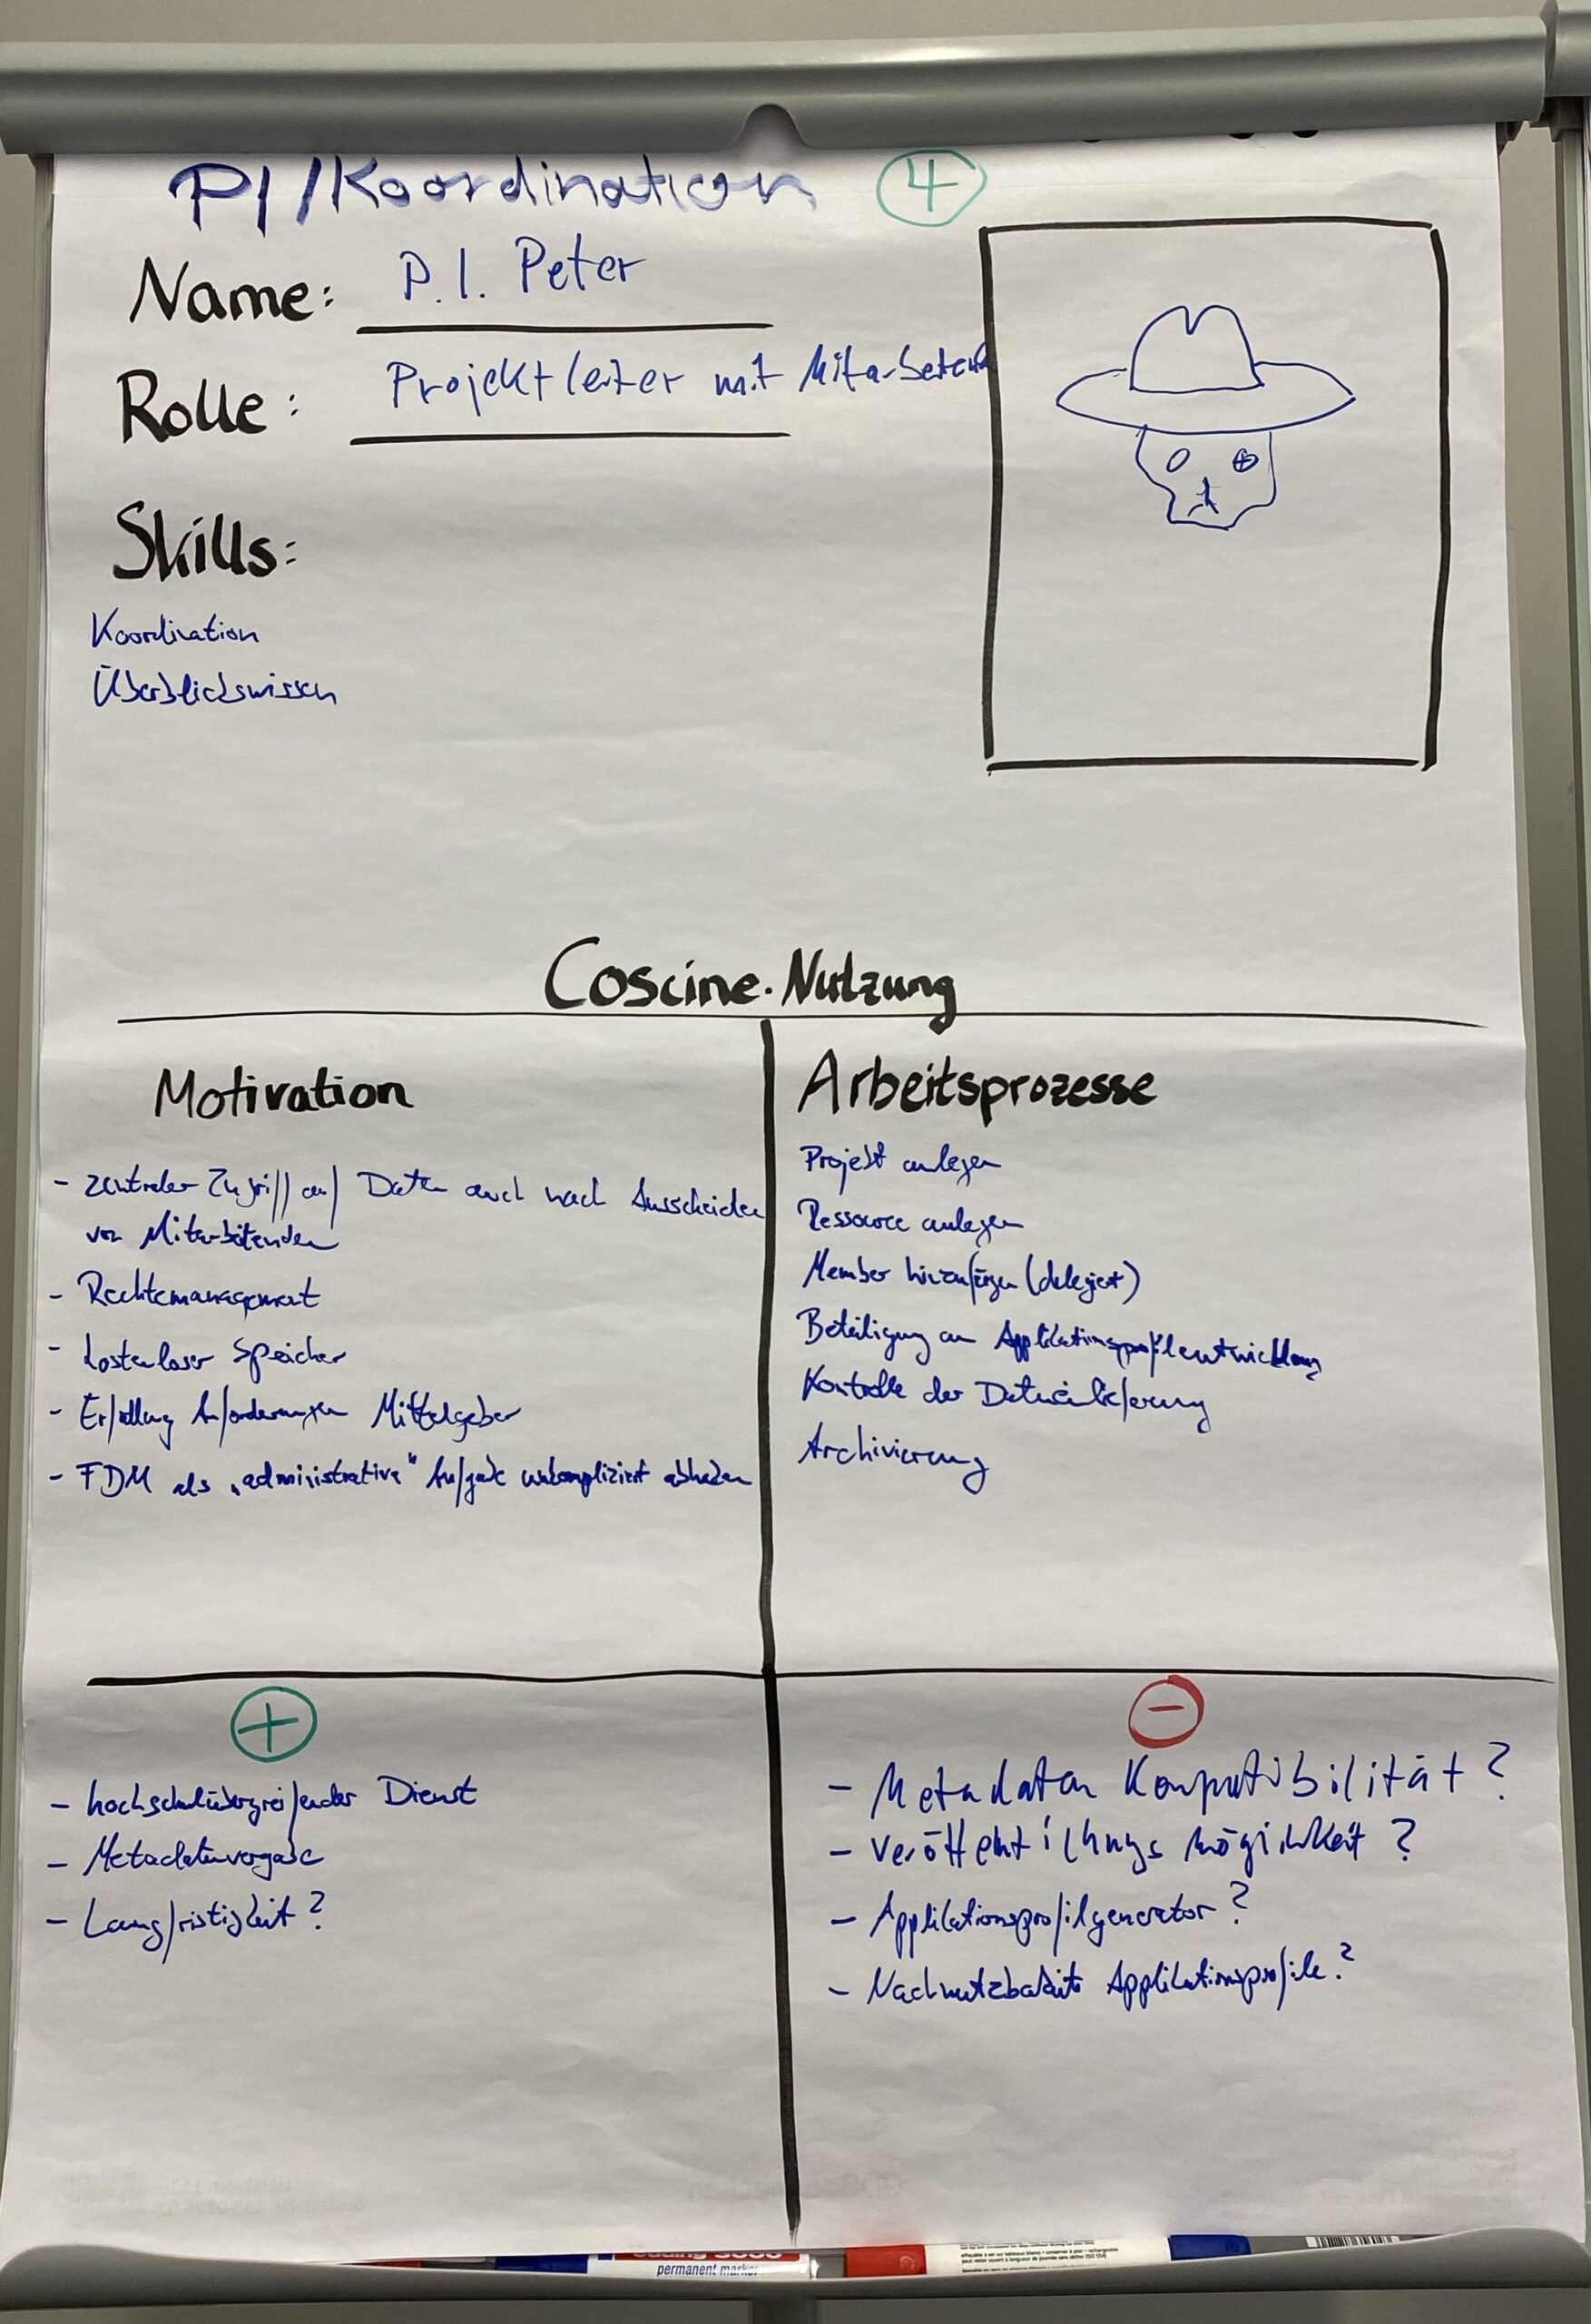 PI/Koordination 4
Name: P.I. Peter
Rolle: Projektleiter mit Mitarbeitend
Skills:
Koordination
Überblickswissen
Coscine-Nutzung
Motivation
- zentraler Zugriff auf Daten auch nach Ausscheiden
von Mitarbeitenden
- Rechtemanagement
- kostenloser Speicher
- Erfüllung Anforderungen Mittelgeber
- FDM als „administrative" Aufgabe unkompliziert abhaken
Arbeitsprozesse
Projekt anlegen
Ressource anlegen
Member hinzufügen (delegiert)
Beteiligung an Applikationsprofilentwicklung
Kontrolle der Dateneinlieferung
Archivierung
+
- hochschulübergreifender Dienst
- Metadatenvergabe
- Langfristigkeit?
-
- Metadaten Komputibilität?
- Veröffentlichungsmöglichkeit?
- Applikationsprofilgenerator?
- Nachnutzbarkeit Applikationsprofile?
permanent marker